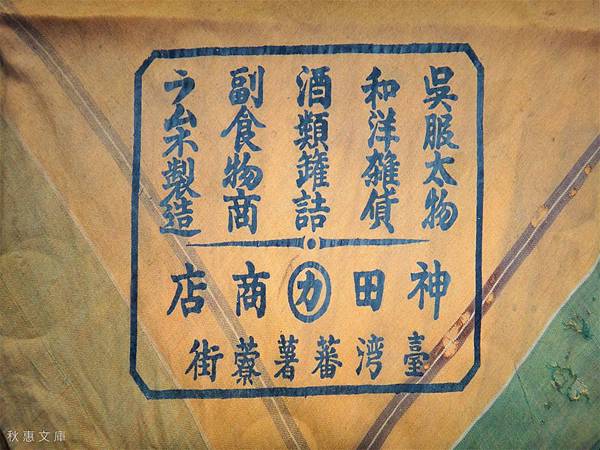 呉服太物
和洋雑貨
酒類罐詰
副食物商
ラムネ製造
神田カ商店
臺湾蕃薯藔街
秋惠文庫